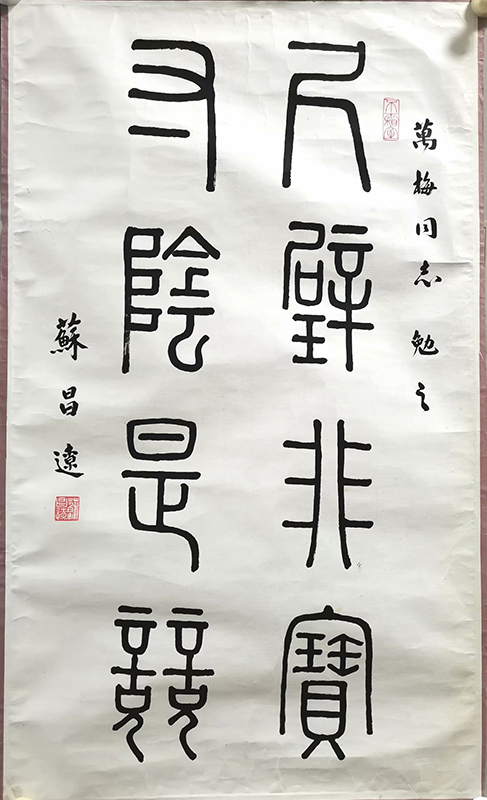 萬梅同志勉之
尺璧非寶
寸陰是競
蘇昌遼